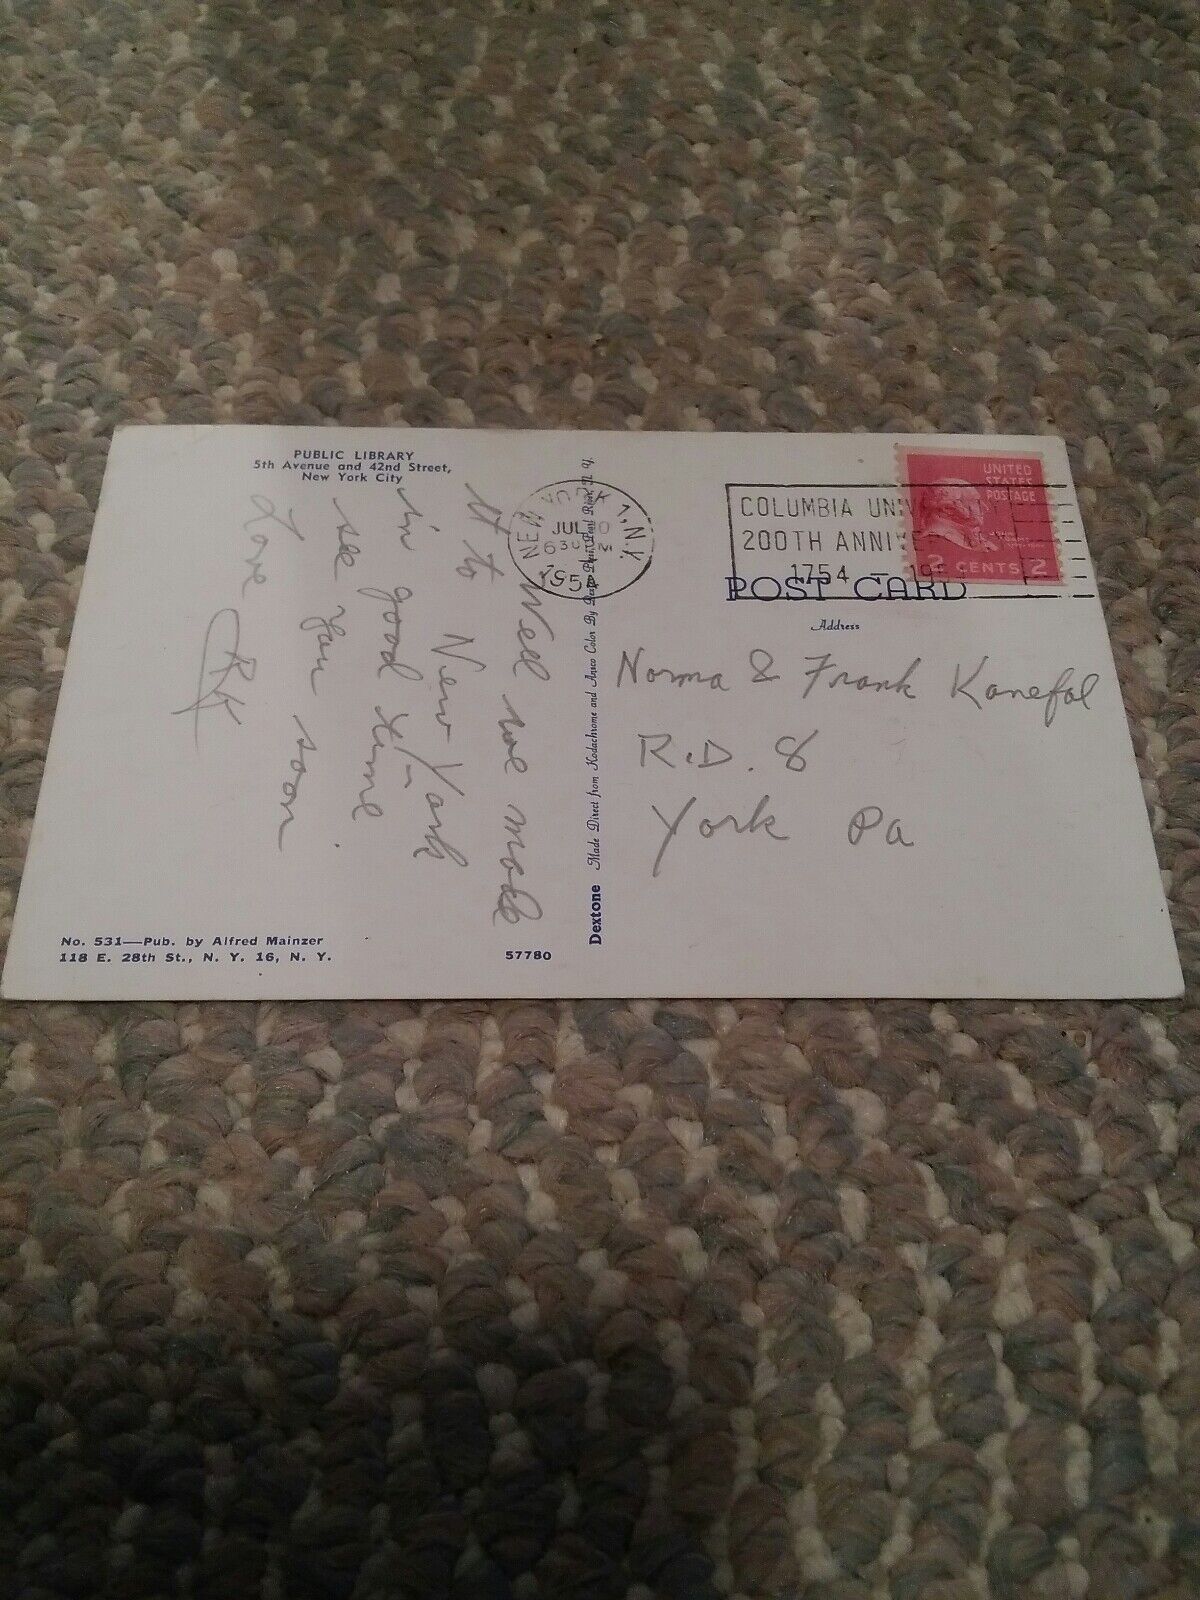 PUBLIC LIBRARY
5th Avenue and 42nd Street,
New York City
Well we made
it to New York
in good time
see you soon
Love
RK
No. 531—Pub. by Alfred Mainzer
118 E. 28th St., N. Y. 16, N. Y.
57780
Dextone Made Direct from Kodachrome and Ansco Color By Pearl N. Y.
NEW YORK 1, N.Y.
JUL
630 PM
1954
COLUMBIA UNIVERSITY
200TH ANNIVERSARY
1754 – 1954
UNITED
STATES
POSTAGE
2 CENTS 2
POST CARD
Address
Norma & Frank Kanefal
R.D. 8
York Pa